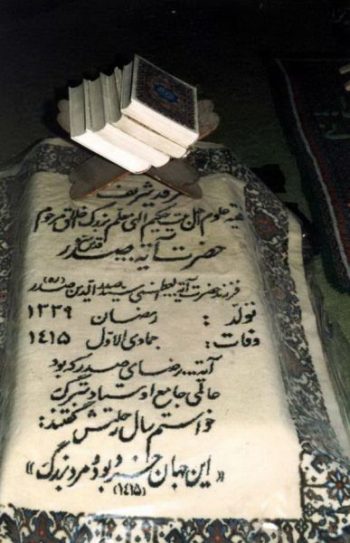 مرقد شریف
علوم آل حکیم الهی معلم بزرگ اخلاق مرحوم
حضرت آیة الله صدر
فرزند حضرت آیة الله العظمی سید صدرالدین صدر (ره)
تولد : رمضان ۱۳۳۹
وفات : جمادی الاول ۱۴۱۵
آیة... رضای صدر که بود
عالمی جامع اوستاد سترگ
خواستم سال رحلتش گفتند:
«این جهان خرد بود و مرد بزرگ»
(۱۴۱۵)